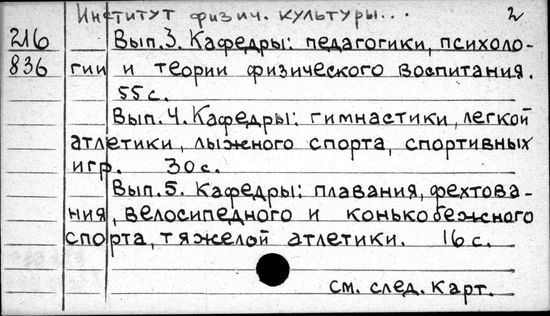 Институт физич. культуры... 2
216 Вып.3. Кафедры: педагогики, психоло-
836 гии и теории физического воспитания.
55 с.
Вып.4. Кафедры: гимнастики, легкой
атлетики, лыжного спорта, спортивных
игр. 30 с.
Вып.5. Кафедры: плавания, фехтова-
ния, велосипедного и конькобежного
спорта, тяжелой атлетики. 16 с.
см. след. карт.